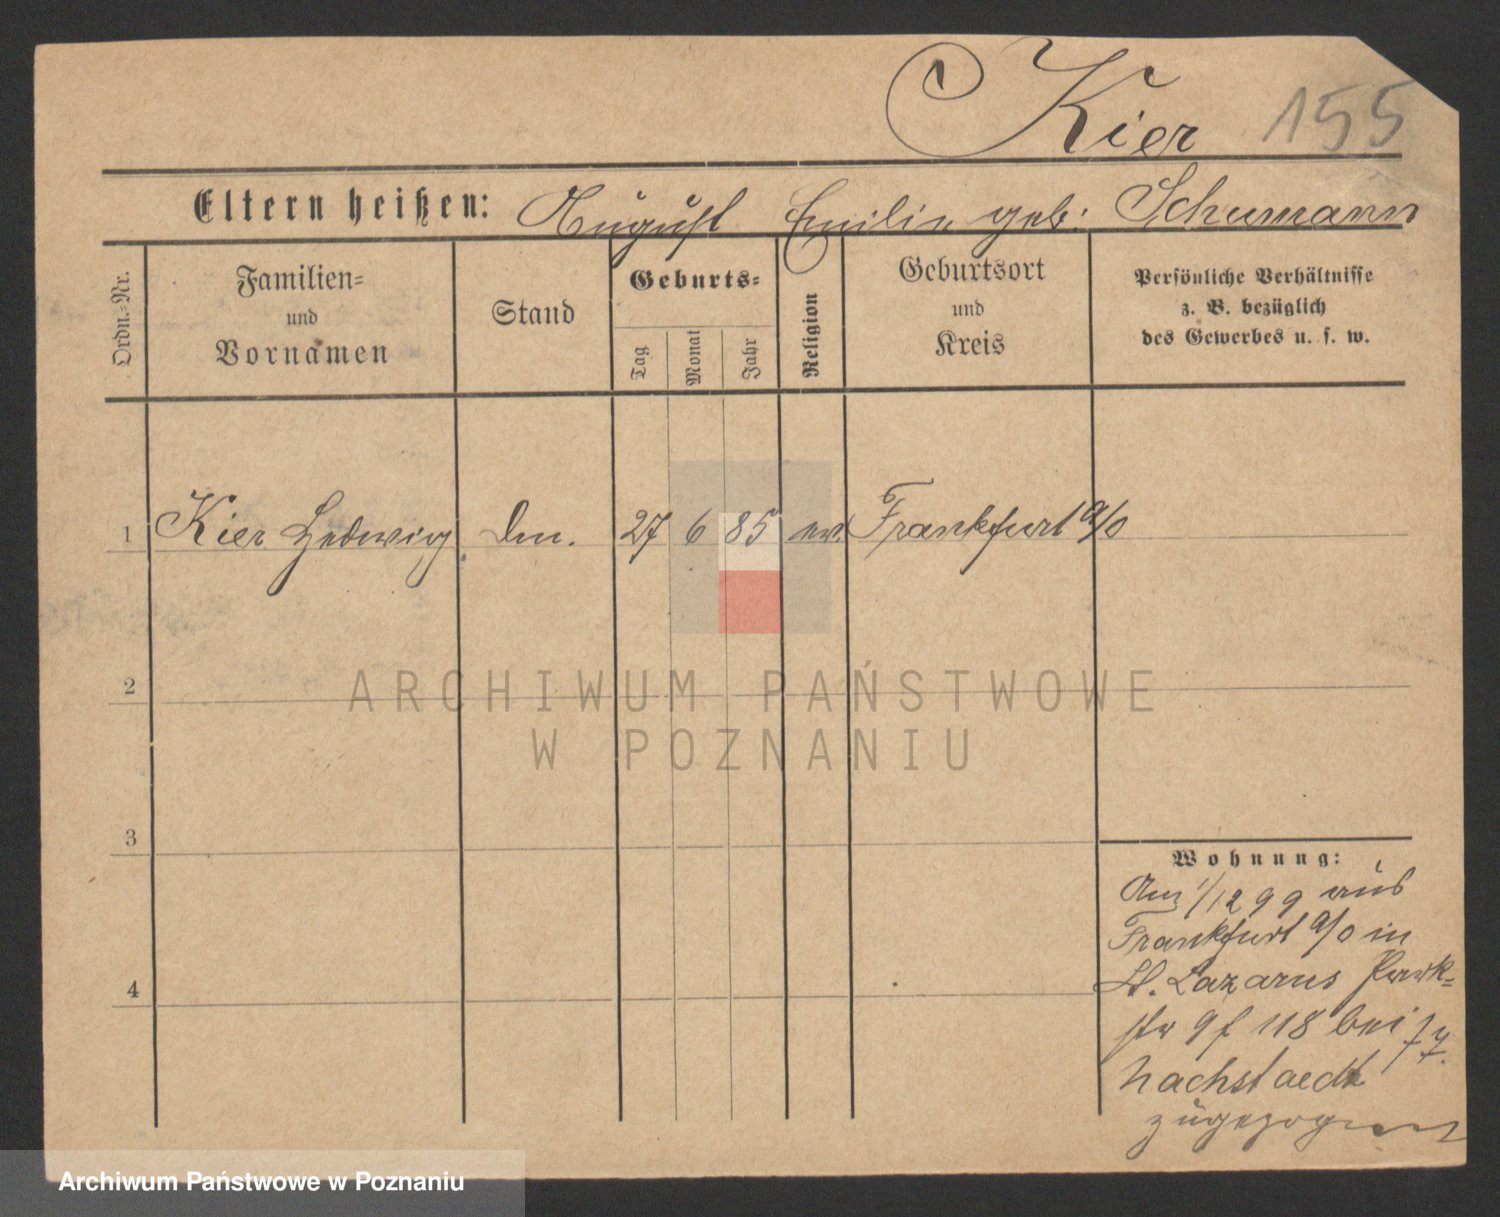 Kier 155
Eltern heißen: August Emilie geb: Schumann
Ordn.-Nr.
Familien=
und
Vornamen
Stand
Geburts=
Tag
Monat
Jahr
Religion
Geburtsort
und
Kreis
Persönliche Verhältnisse
z. B. bezüglich
des Gewerbes u. s. w.
1 Kier Hedwig 27 6 85 ev. Frankfurt a/O
2
3
4
Wohnung:
Am 1/12 99 aus
Frankfurt a/O in
St. Lazarus Park=
str 9f 118 bei
Nachstaedt
zugezogen
ARCHIWUM PAŃSTWOWE
W POZNANIU
Archiwum Państwowe w Poznaniu